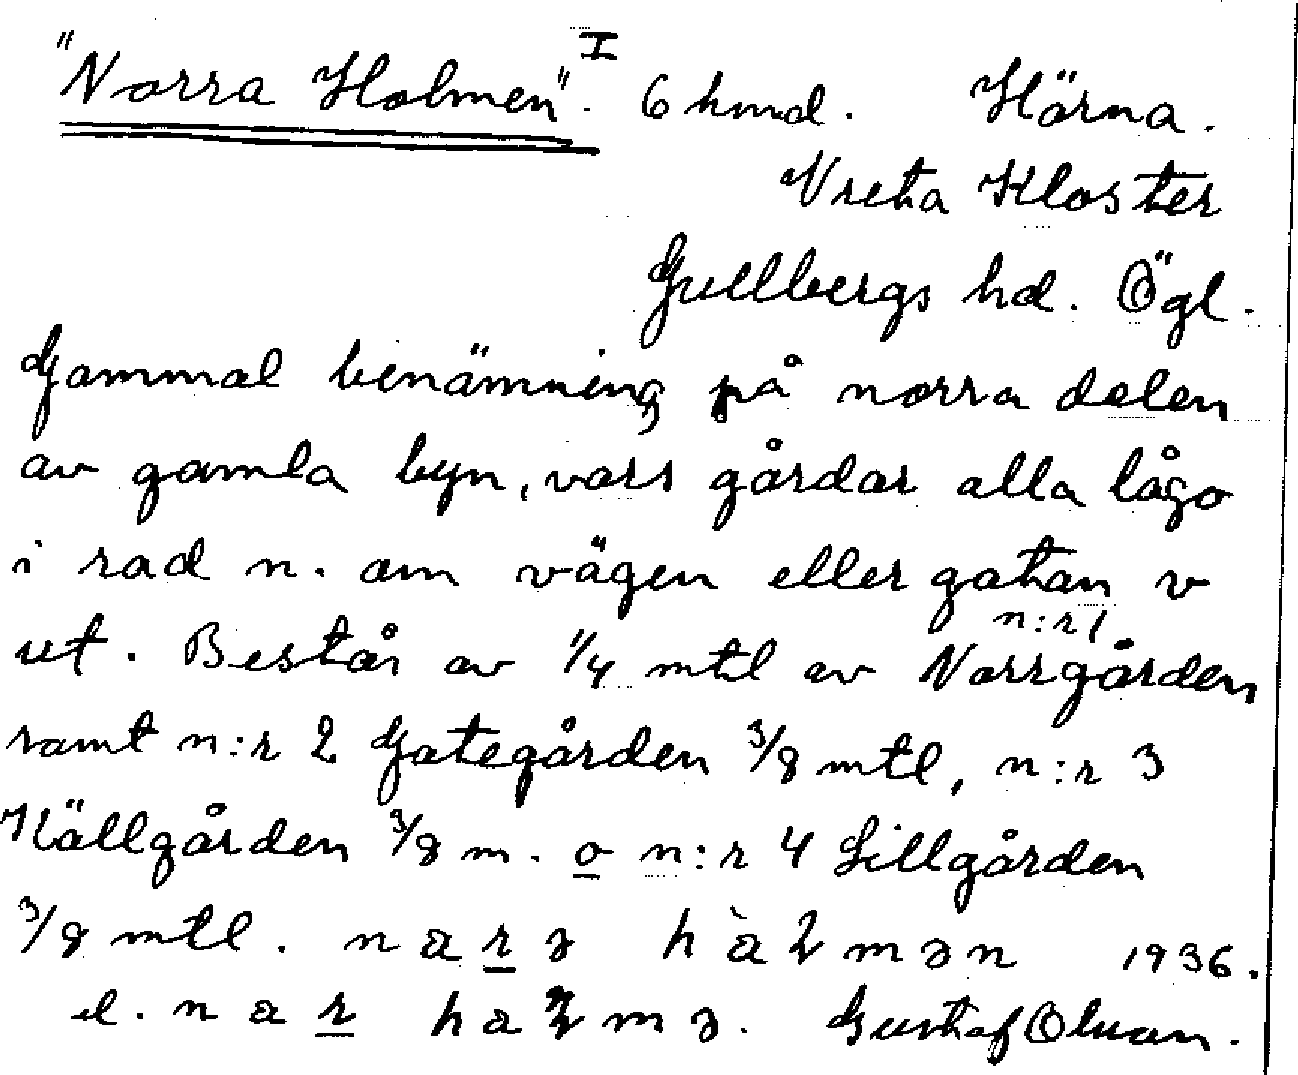 "Norra Holmen" I. 6 hmd. Härna.
Vreta Kloster
Gullbergs hd. Ögl.
Gammal benämning på norra delen
av gamla byn, vars gårdar alla lågo
i rad n. om vägen eller gatan v
ut. Består av 1/4 mtl av n:r 1 Norrgården
samt n:r 2 Gategården 3/8 mtl, n:r 3
Källgården 3/8 m. o n:r 4 Lillgården
3/8 mtl. 1936.
el. Gustaf Olson.